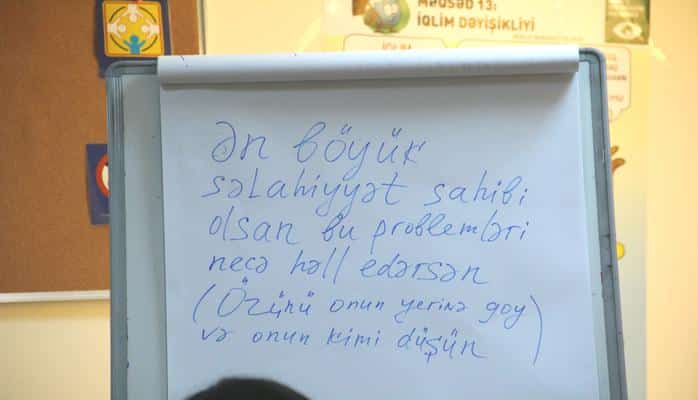 MƏQSƏD 13:
İQLİM DƏYİŞİKLİYİ
İQLİM
Ən böyük
səlahiyyət sahibi
olsan bu problemləri
necə həll edərsən
(Özünü onun yerinə goy
və onun kimi düşün)